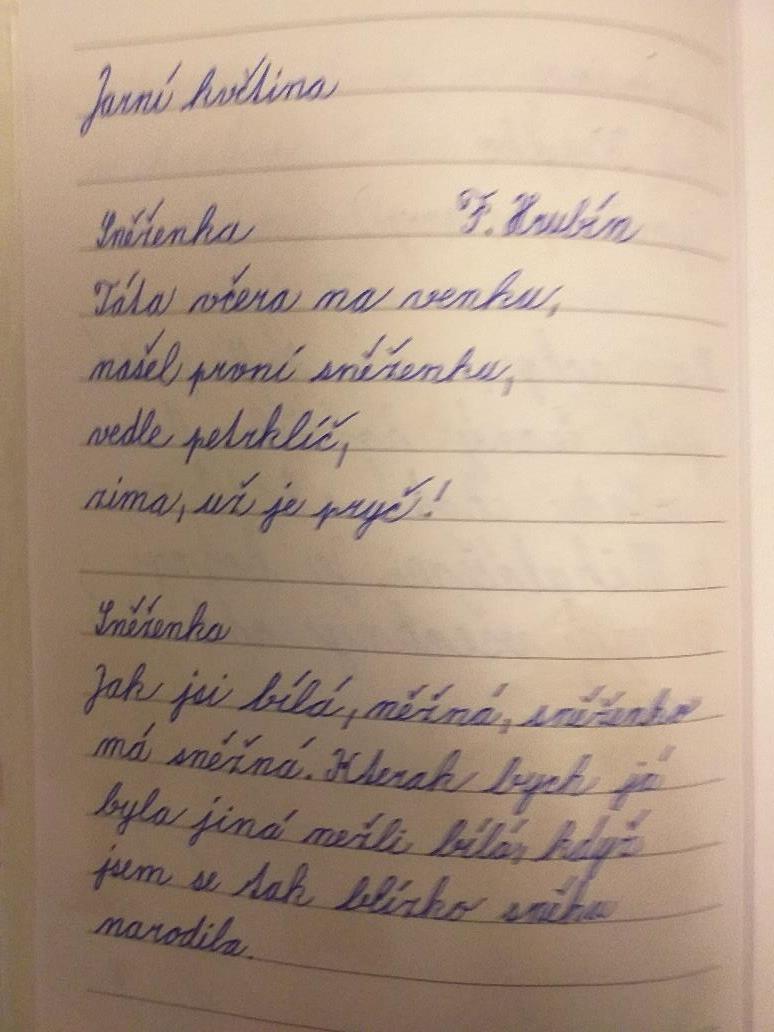 Jarní květina
Sněženka F. Hrubín
Táta včera na venku,
našel první sněženku,
vedle petrklíč,
zima, už je pryč!
Sněženka
Jak jsi bílá, něžná, sněženko
má sněžná. Kterak bych já
byla jiná nežli bílá, když
jsem se tak blízko sněhu
narodila.